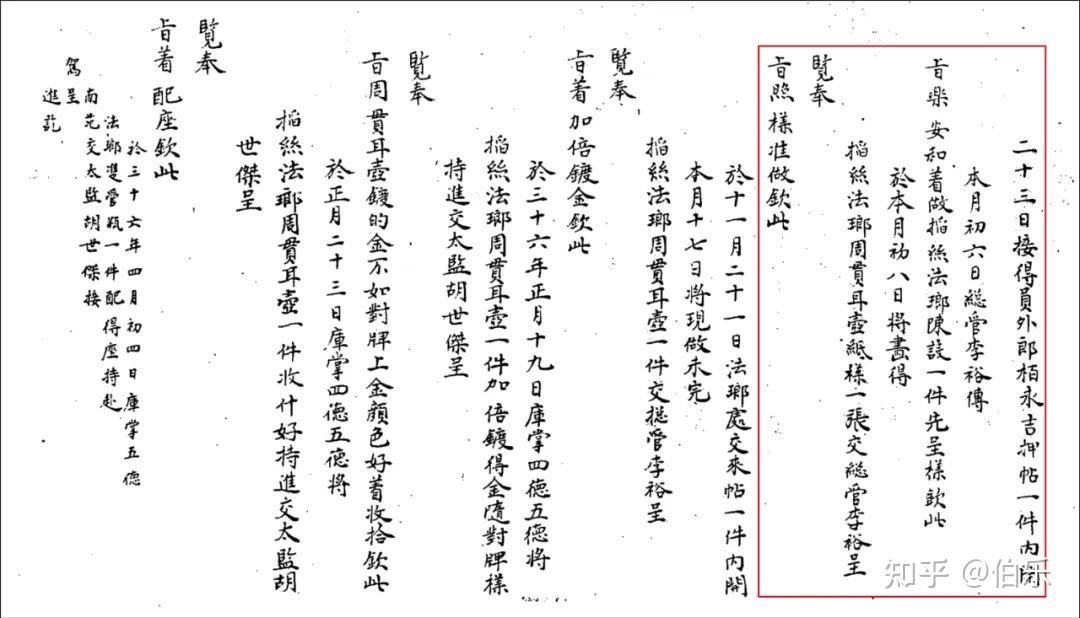 二十三日接得員外郎栢永吉押帖一件內開
本月初六日總管李裕傳
旨樂安和着做掐絲法瑯陳設一件先呈樣欽此
於本月初八日將畫得
掐絲法瑯周貫耳壺紙樣一張交總管李裕呈
覽奉
旨照樣准做欽此
於十一月二十一日法瑯處交來帖一件內開
本月十七日將現做未完
掐絲法瑯周貫耳壺一件交摠管李裕呈
覽奉
旨着加倍鍍金欽此
於三十六年正月十九日庫掌四德五德將
掐絲法瑯周貫耳壺一件加倍鍍得金隨對牌樣
持進交太監胡世傑呈
覽奉
旨周貫耳壺鍍的金不如對牌上金顏色好着收拾欽此
於正月二十三日庫掌四德五德將
掐絲法瑯周貫耳壺一件收什好持進交太監胡
世傑呈
覽奉
旨着配座欽此
於三十六年四月初四日庫掌五德
法瑯雙管瓶一件配得座持赴
南苑交太監胡世傑接
駕呈
進訖
知乎 @伯乐